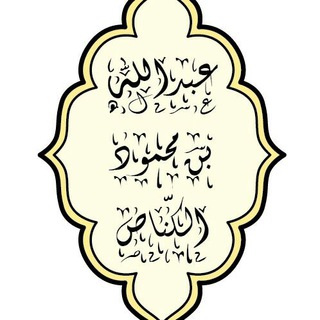 عبدالله
بن محمود
الكناص